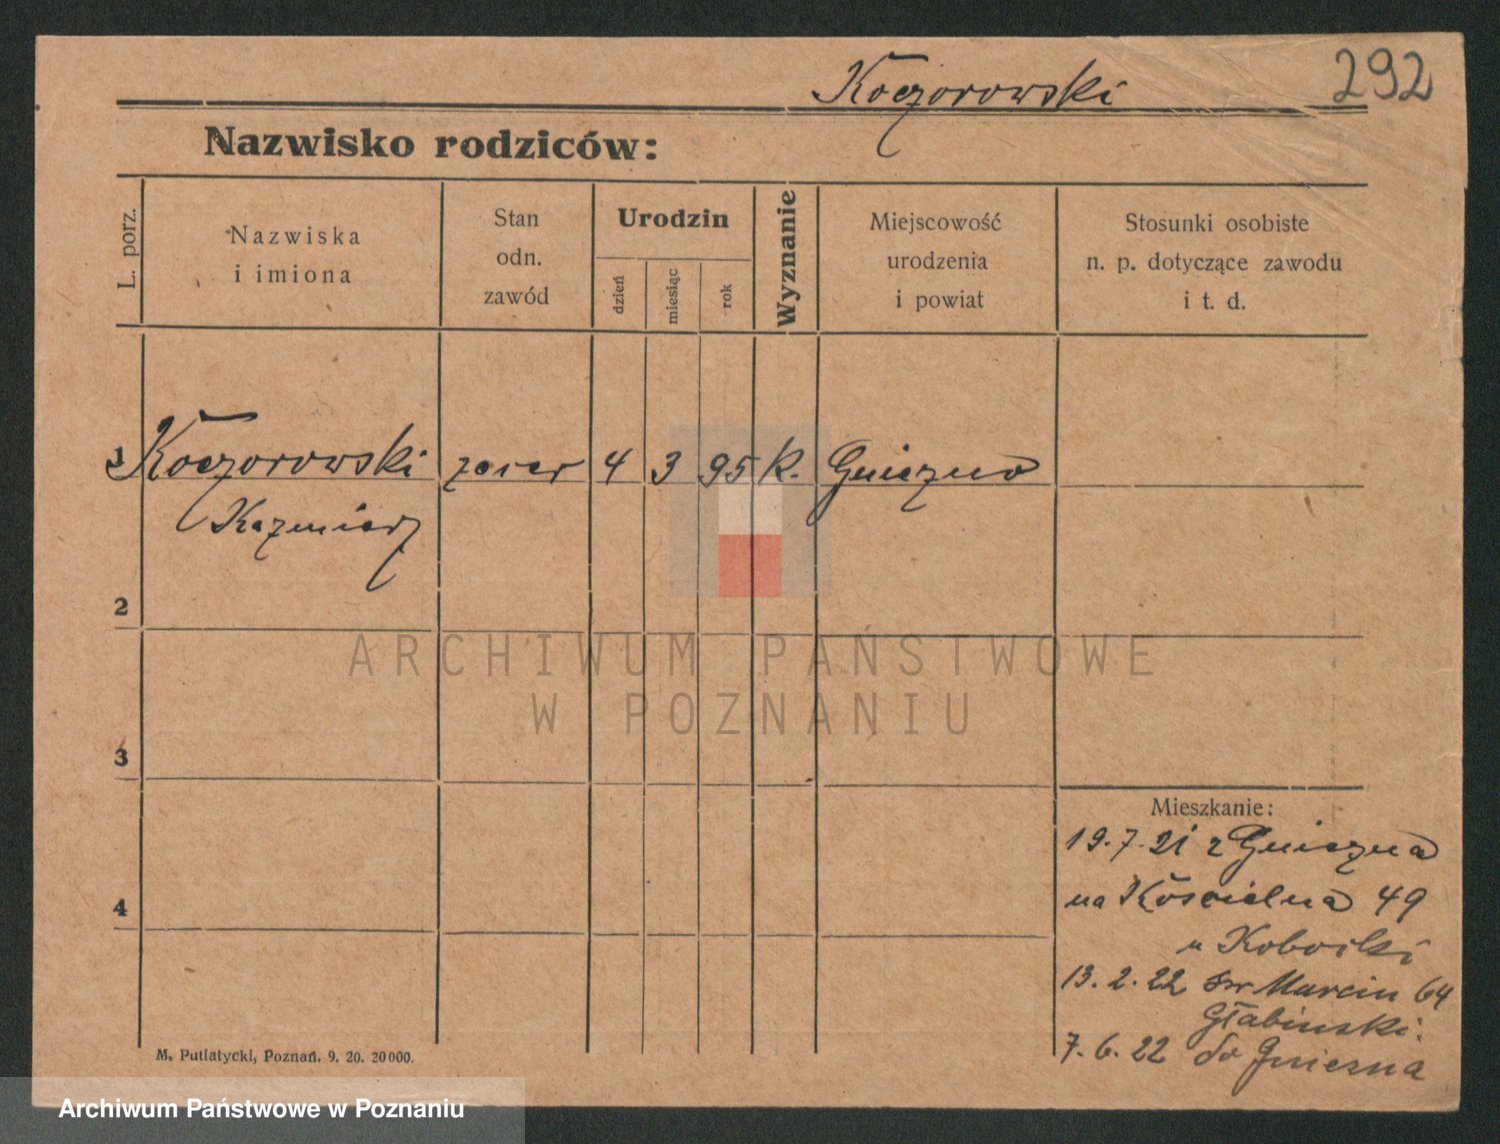 Koczorowski
292
Nazwisko rodziców:
L. porz.
Nazwiska
i imiona
Stan
odn.
zawód
Urodzin
dzień
miesiąc
rok
Wyznanie
Miejscowość
urodzenia
i powiat
Stosunki osobiste
n. p. dotyczące zawodu
i t. d.
1 Koczorowski 4 3 95 K. Gniezno
Kazmierz
2
ARCHIWUM PAŃSTWOWE
W POZNANIU
3
4
Mieszkanie:
19.7.21 z Gniezna
na Kościelna 49
u
13.2.22 św Marcin 64
Głabinski.
7.6.22 do Gniezna
M. Putiatycki, Poznań. 9. 20. 20000.
Archiwum Państwowe w Poznaniu